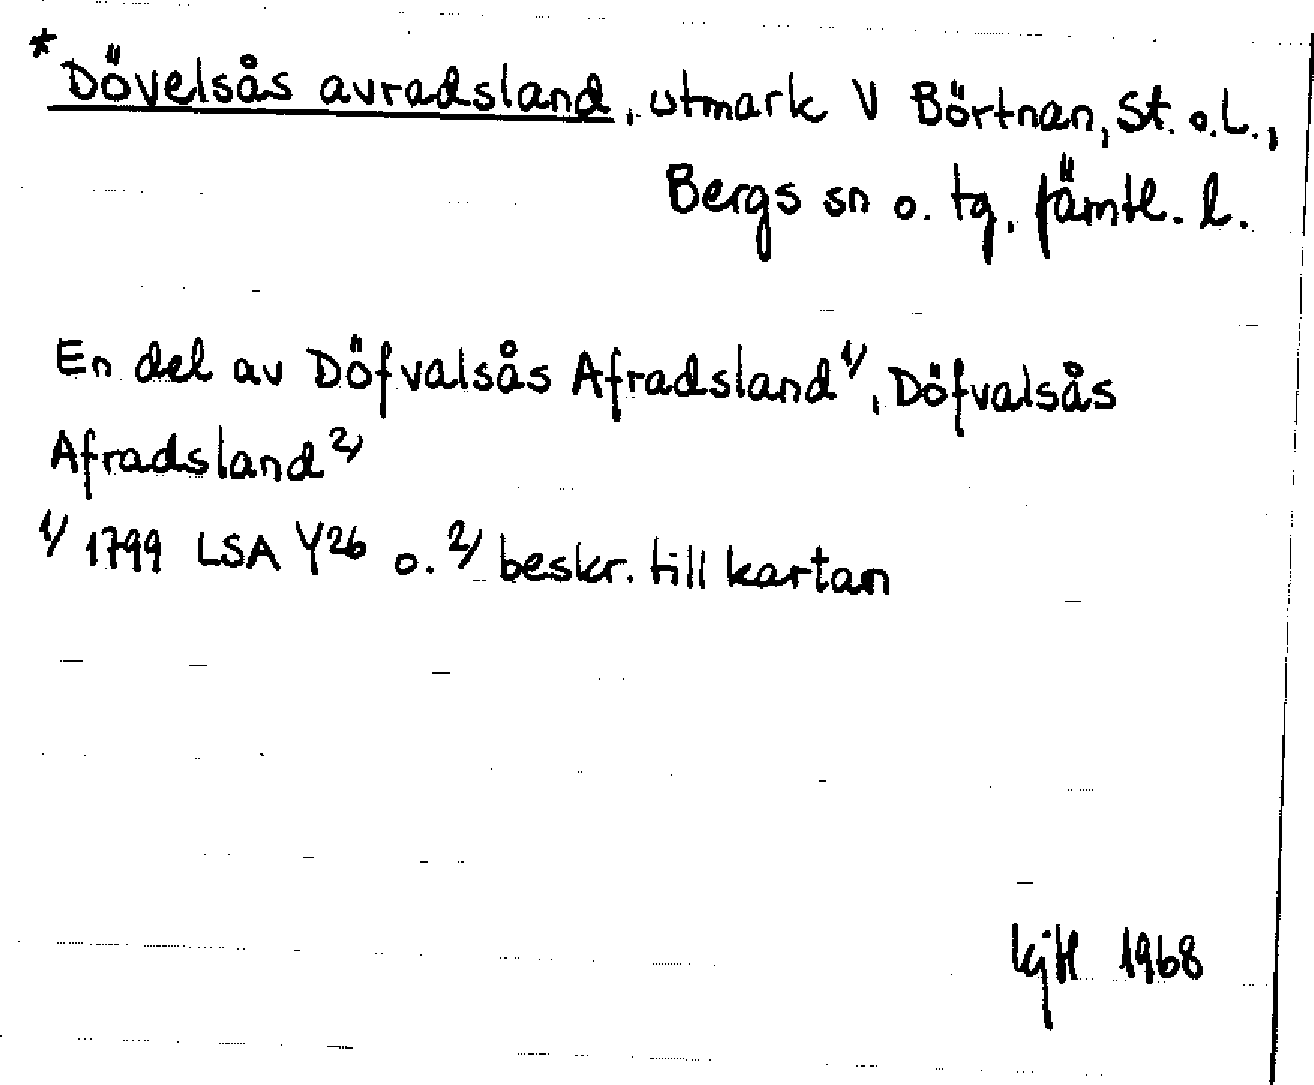 *Dövelsås avradsland, utmark V Börtnan, St. o. L.,
Bergs sn o. tg. Jämtl. l.
En del av Döfvalsås Afradsland 1/, Döfvalsås
Afradsland 2/
1/ 1799 LSA Y26 o. 2/ beskr. till kartan
KjH 1968